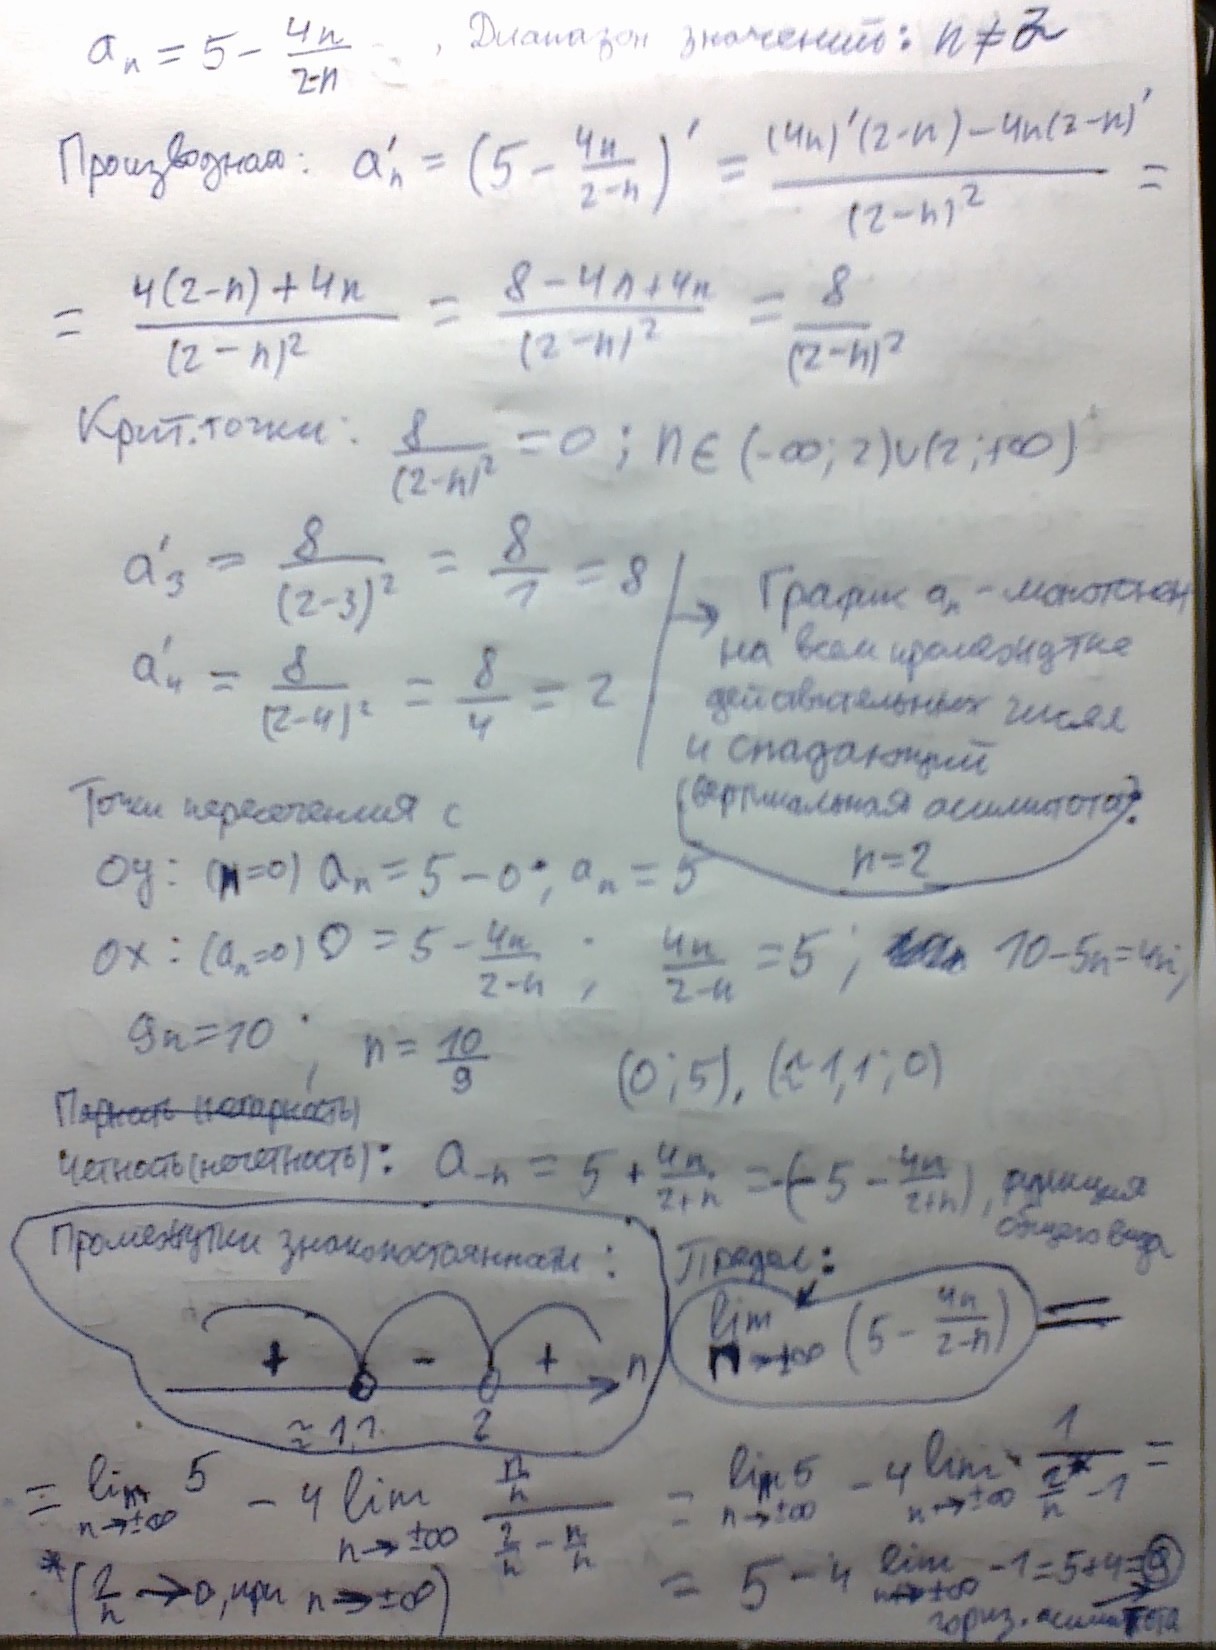 aₙ = 5 - 4n/(2-n) , Диапазон значений: n ≠ 2
Производная: a'ₙ = (5 - 4n/(2-n))' = ((4n)'(2-n) - 4n(2-n)')/(2-n)² =
= (4(2-n)+4n)/(2-n)² = (8-4n+4n)/(2-n)² = 8/(2-n)²
Крит. точки: 8/(2-n)² = 0 ; n ∈ (-∞; 2)∪(2; +∞)
a'₃ = 8/(2-3)² = 8/1 = 8
a'₄ = 8/(2-4)² = 8/4 = 2
→ График aₙ - монотонен
на всем промежутке
действительных чисел
и спадающий
(вертикальная асимптота):
n=2
Точки пересечения с
oy: (n=0) aₙ = 5 - 0; aₙ = 5
ox: (aₙ=0) 0 = 5 - 4n/(2-n) ; 4n/(2-n) = 5 ; 10-5n=4n;
9n=10 ; n = 10/9 (0; 5), (≈1,1; 0)
Четность (нечетность): a₋ₙ = 5 + 4n/(2+n) = -(-5 - 4n/(2+n)), функция
общего вида
Промежутки знакопостоянности:
+ - + n
≈1,1 2
Предел:
lim n→±∞ (5 - 4n/(2-n)) =
= lim n→±∞ 5 - 4 lim n→±∞ (n/n)/(2/n - n/n) = lim n→±∞ 5 - 4 lim n→±∞ 1/(2/n* - 1) =
*(2/n → 0, при n→±∞) = 5 - 4 lim n→±∞ -1 = 5+4 = 9
гориз. асимптота